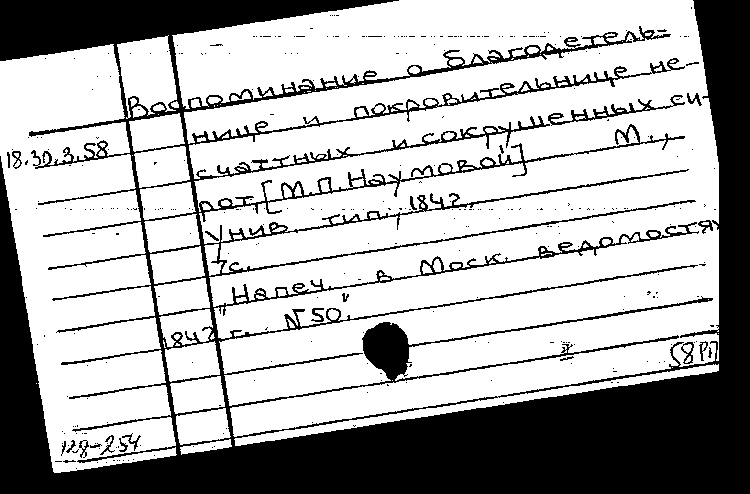 Воспоминание о благодетель=
нице и покровительнице не-
18.30.3.58
счастных и сокрушенных си-
рот, [М.П. Наумовой] М.,
Унив. тип., 1842.
7с.
„Напеч. в Моск. ведомостях
1842 г. N50."
58РП
128-254